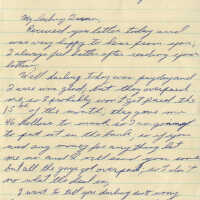 My Darling
Received your letter today and
was very happy to hear from you,
I always feel better after reading your
letters.
Well darling today was payday and
I sure was good, but they overpaid
me so I probably won't get paid the
15 of this month, they gave me
46 dollars to much so I am going
to put it in the bank, so if you
need any money for any thing let
me no and I will send you some
but all the guys got overpaid, so I don't
no what the deal is,
I want to tell you darling not worry